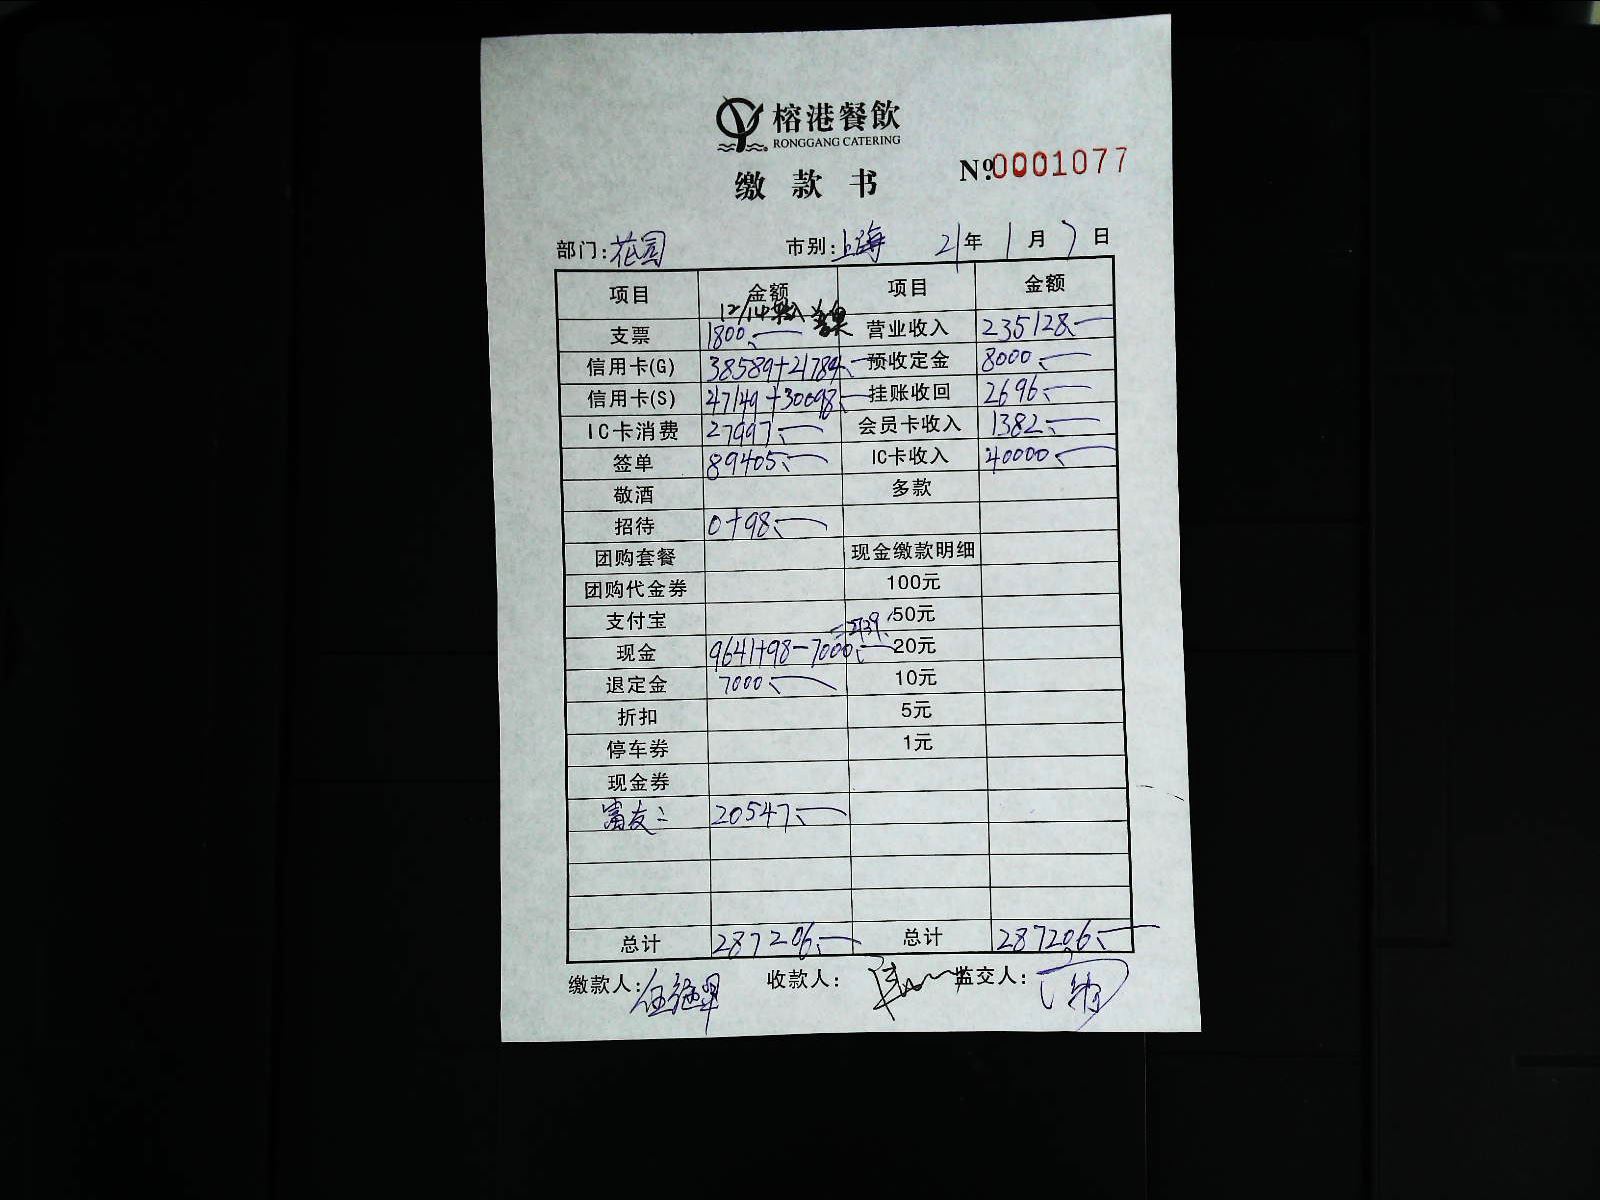 榕港餐飲
RONGGANG CATERING
缴款书
№0001077
部门:花园 市别:上海 21年1月7日
项目 金额 项目 金额
12/14 转入
支票 1800、— 营业收入 235128、—
信用卡(G) 38589+21784、— 预收定金 8000、—
信用卡(S) 47149+30098、— 挂账收回 2696、—
IC卡消费 27997、— 会员卡收入 1382、—
签单 89405、— IC卡收入 40000、—
敬酒 多款
招待 0+98、—
团购套餐 现金缴款明细
团购代金券 100元
支付宝 50元
=2739、
现金 9641+98-7000、— 20元
退定金 7000、— 10元
折扣 5元
停车券 1元
现金券
20547、—
总计 287206、— 总计 287206、—
缴款人: 收款人: 监交人: